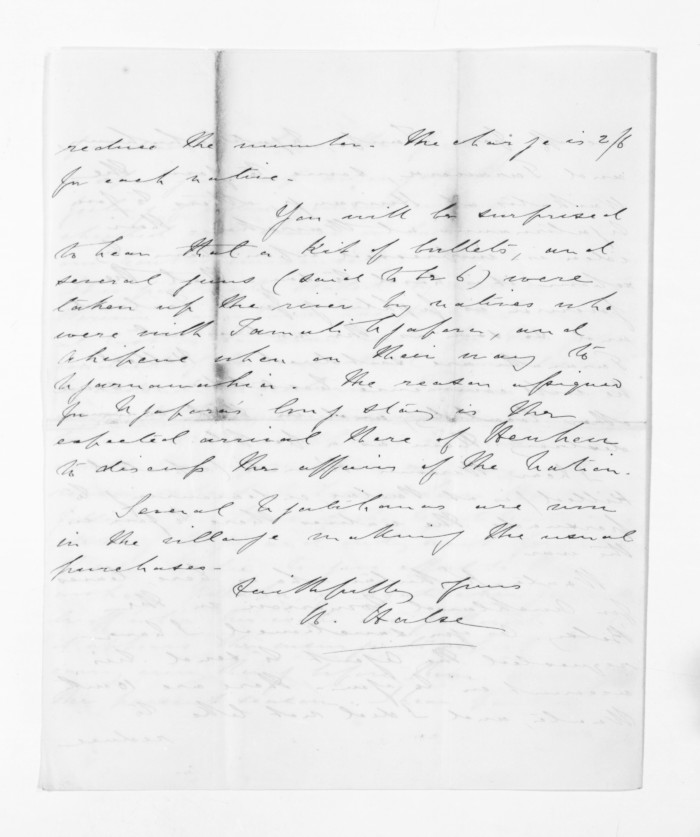 reduce the number. The charge is 2/6
for each native.
You will be surprised
to hear that a kit of bullets, and
several guns (said to be 6) were
taken up the river by natives who
were with Tamati Ngapora, and
when on their way to
Ngaruawahia. The reason assigned
for Ngapora's long stay is the
expected arrival there of Heuheu
to discuss the affairs of the Nation.
Several Ngatihauas are now
in the village making the usual
purchases.
Faithfully yours
H. Halse
reduce